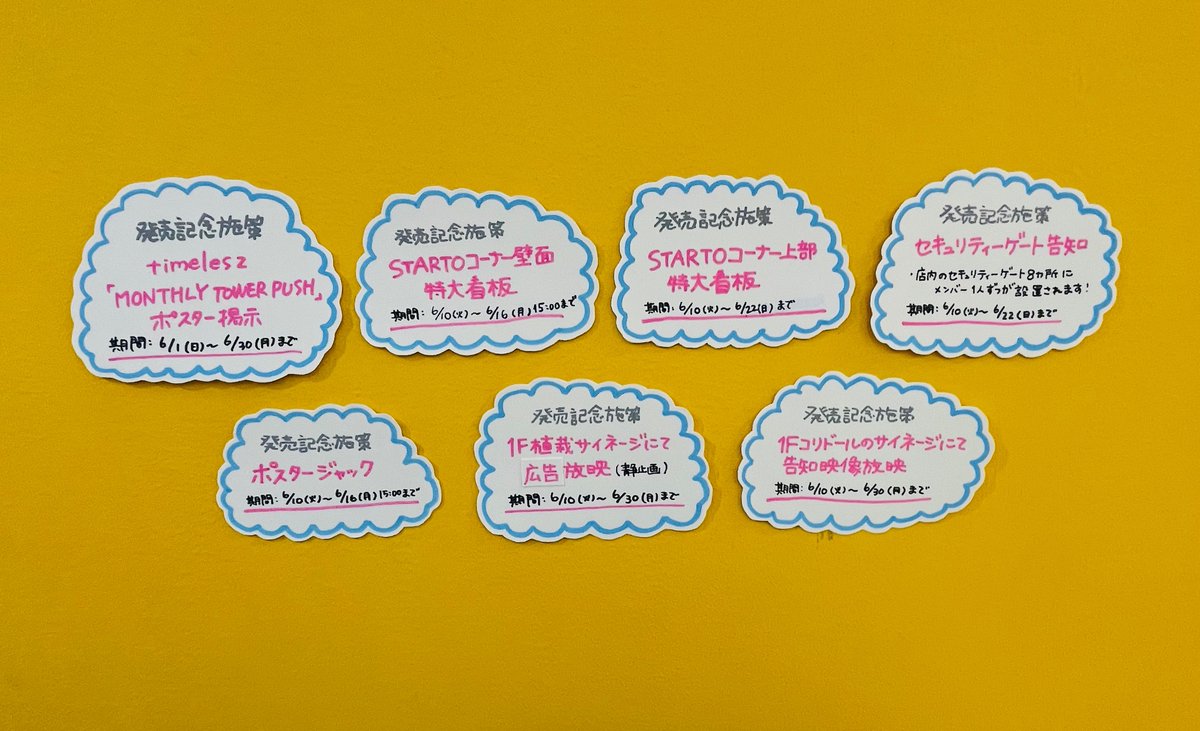 発売記念施策
timelesz
「MONTHLY TOWER PUSH」
ポスター掲示
期間：6/1(日)～6/30(月)まで
発売記念施策
STARTOコーナー壁面
特大看板
期間：6/10(火)～6/16(月)15:00まで
発売記念施策
STARTOコーナー上部
特大看板
期間：6/10(火)～6/22(日)まで
発売記念施策
セキュリティーゲート告知
・店内のセキュリティーゲート8カ所に
メンバー1人ずつが設置されます!
期間：6/10(火)～6/22(日)まで
発売記念施策
ポスタージャック
期間：6/10(火)～6/16(月)15:00まで
発売記念施策
1F植栽サイネージにて
広告放映(静止画)
期間：6/10(火)～6/30(月)まで
発売記念施策
1Fコリドールのサイネージにて
告知映像放映
期間：6/10(火)～6/30(月)まで